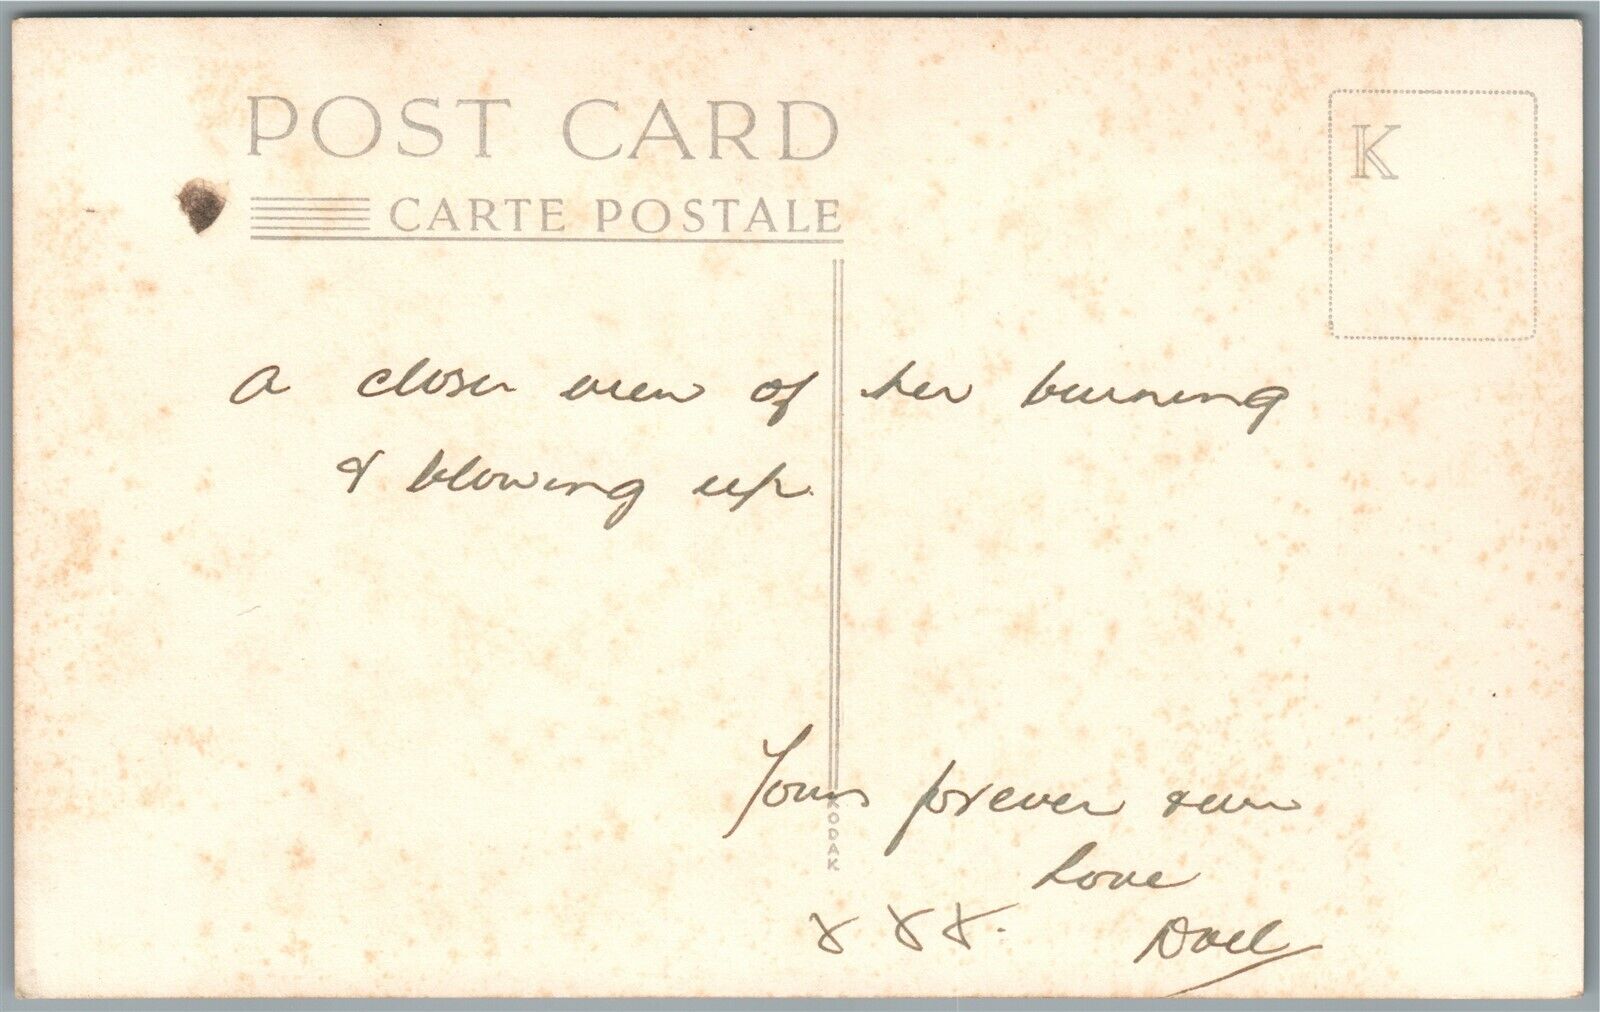 POST CARD
CARTE POSTALE
K
A closer view of her burning
& blowing up.
Yours forever & ever
Love
x x x.
KODAK